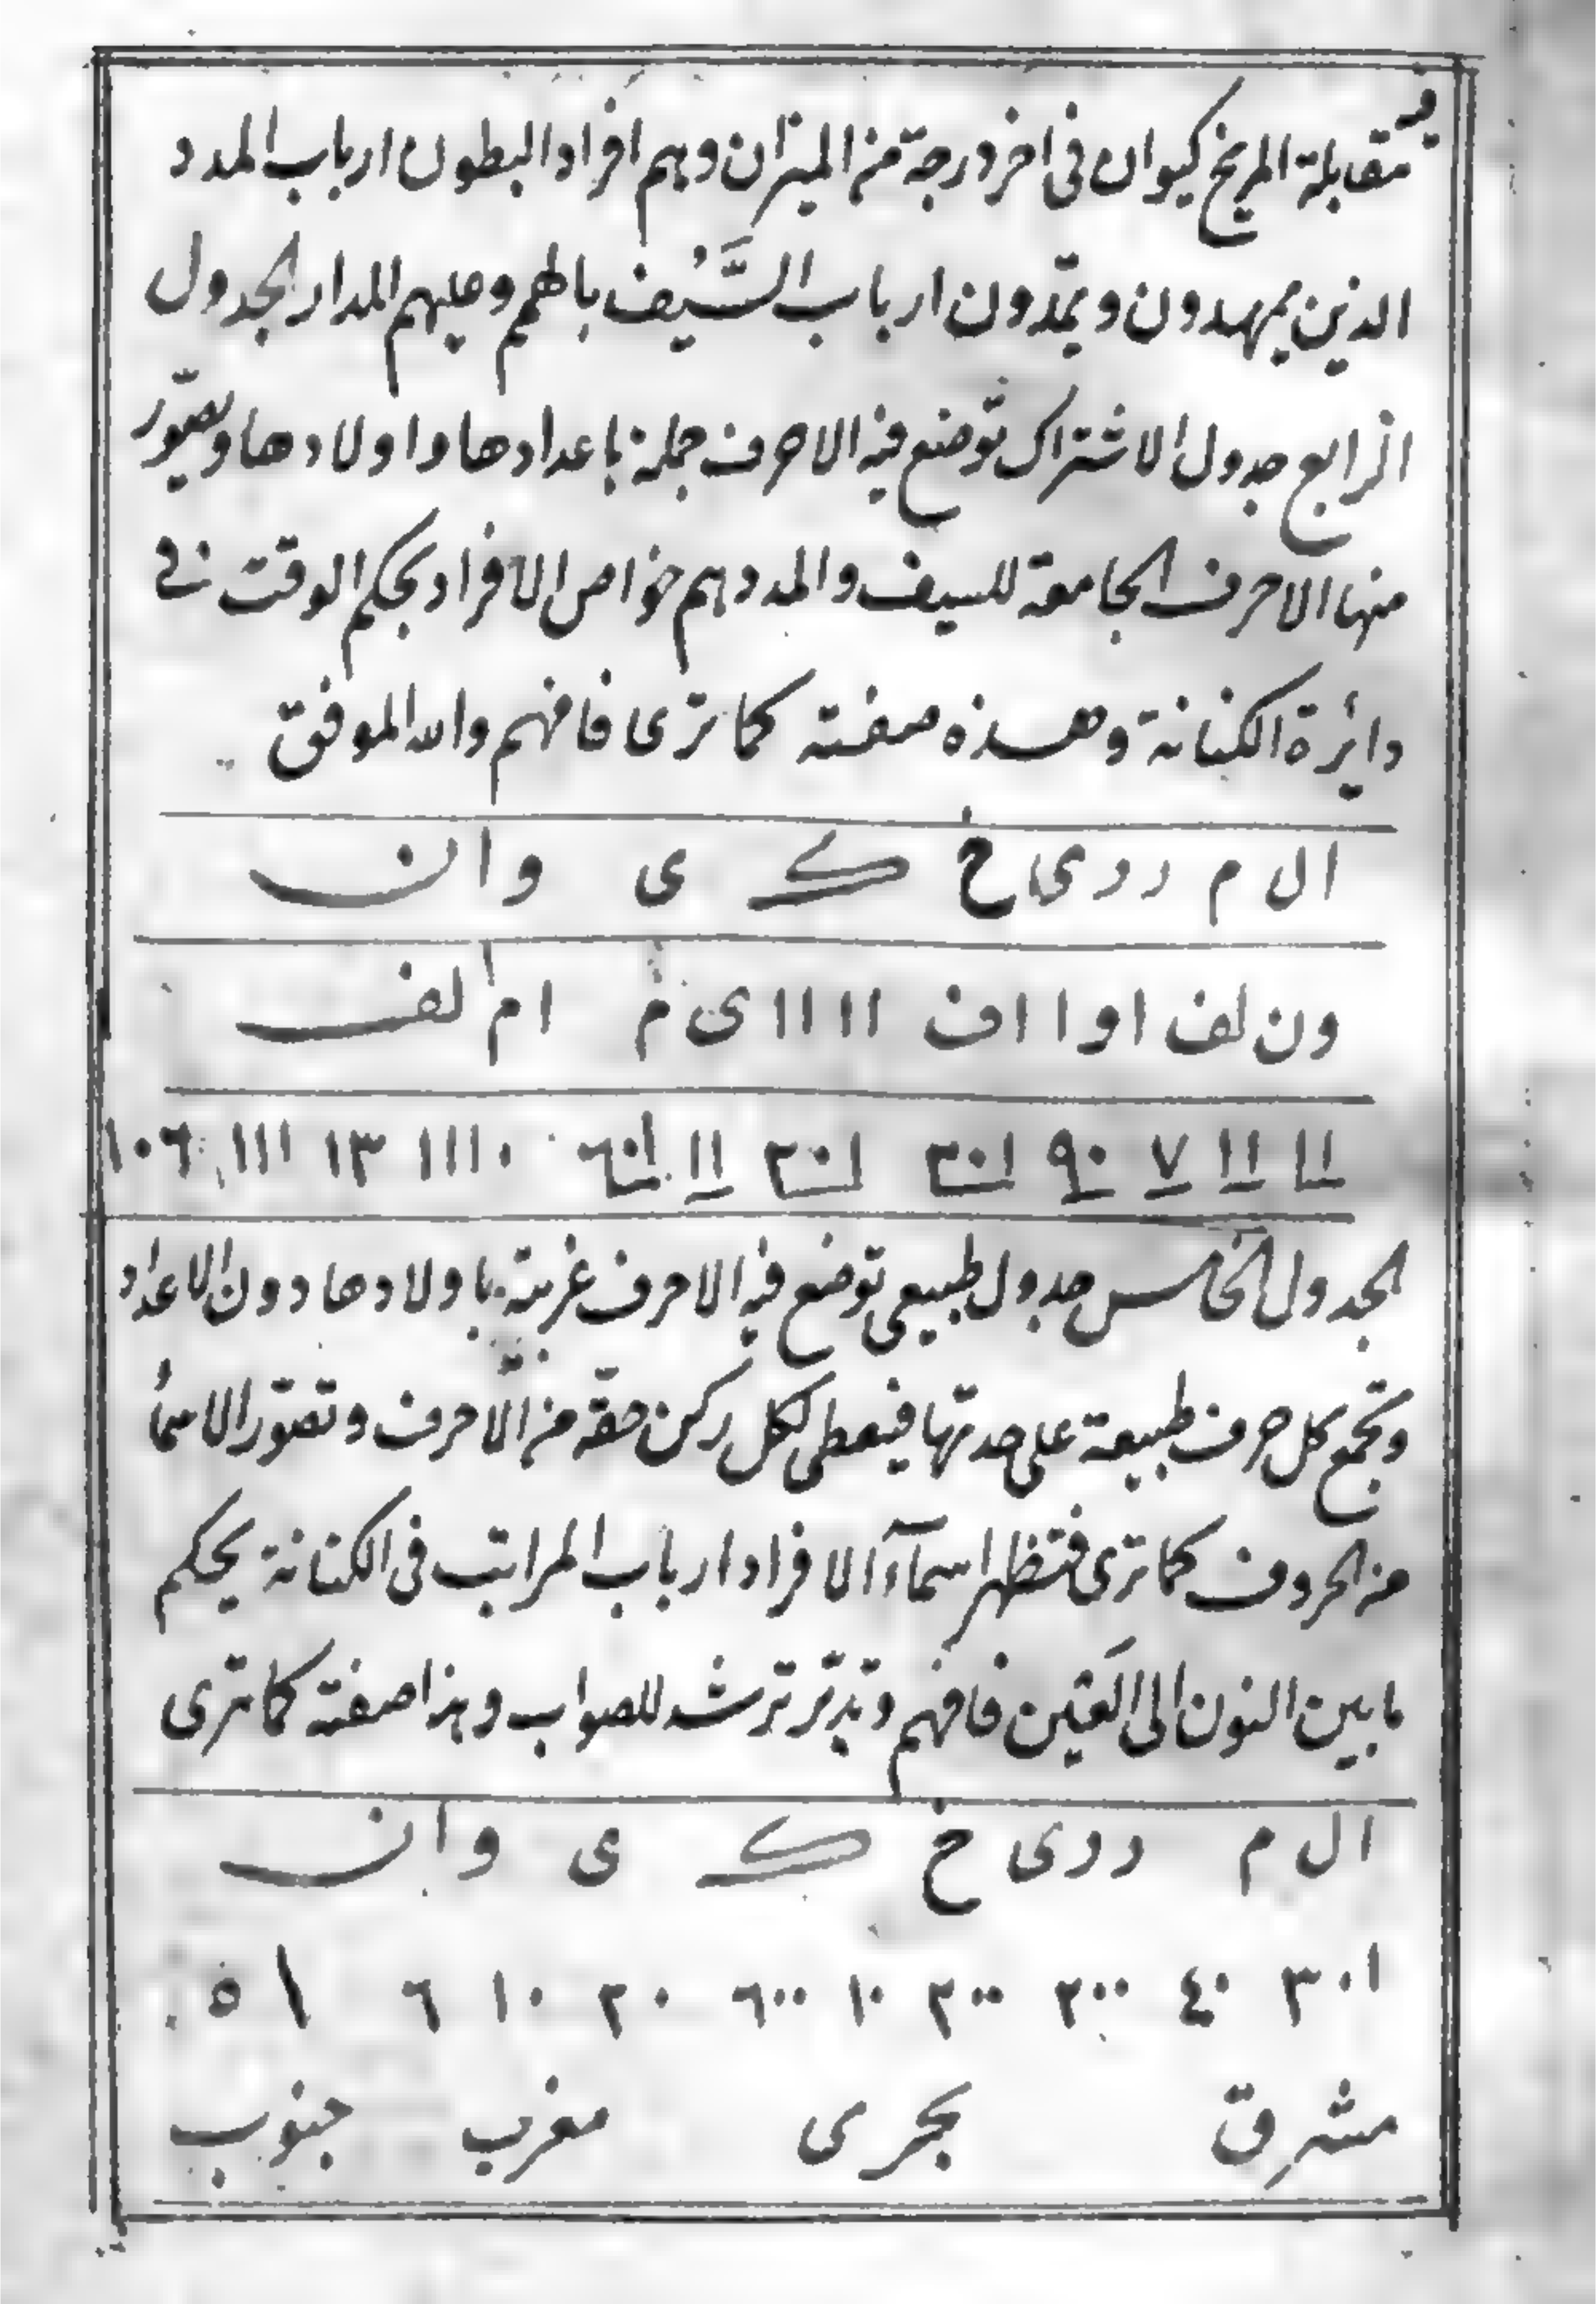 في
مقابلة المريخ كيوان في اخر درجة من الميزان وهم افراد البطون ارباب المدد
الذين يمهدون ويمدّون ارباب السَّيْف بالهمم وعليهم المدار الجدول
الرابع جدول الاشتراك توضع فيه الاحرف جملة باعدادها واولادها ويصوّر
منها الاحرف الجامعة للسيف والمدد هم خواص الافراد بحكم الوقت في
دائرة الكنانة وهذه صفته كما ترى فافهم والله الموفق
ال م ر ر ى خ ك ى و ا ن
ون لف او ا اف ا ا ا ا ى م ام لف
١١ ١١ ٧ ٩٠ ٣٠١ ٣٠١ ١١ ٦٠١ ١١١٠ ١٣ ١١١ ١٠٦
الجدول الخامس جدول طبيعي توضع فيه الاحرف غريبة باولادها دون الاعداد
وتجمع كل حرف طبيعة على حدتها فيعطى لكل ركن حقّه من الاحرف وتصوّر الاسماء
من الحروف كما ترى فتظهر اسمآء الافراد ارباب المراتب في الكنانة بحكم
ما بين النون الى الغين فافهم وتدبّر ترشد للصواب وهذا صفته كما ترى
ال م ر ر ى خ ك ى و ا ن
١ ٣٠ ٤٠ ٢٠٠ ٢٠٠ ١٠ ٦٠٠ ٢٠ ١٠ ٦ ١ ٥٠
مشرق بحرى مغرب جنوب